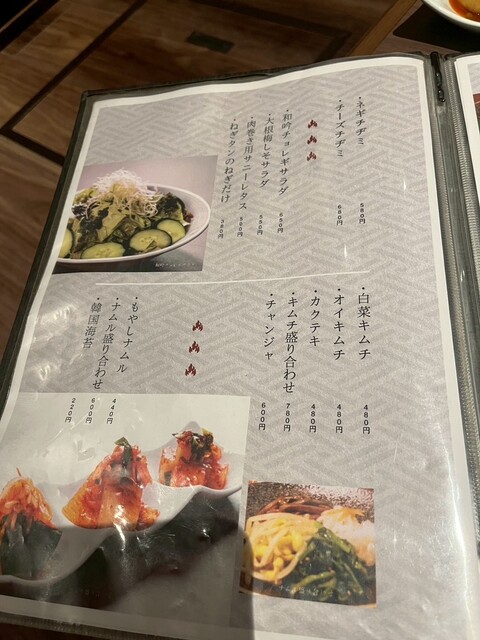 ・ネギチヂミ 580円
・チーズチヂミ 680円
・和吟チョレギサラダ 650円
・大根梅しそサラダ 550円
・肉巻き用サニーレタス 500円
・ねぎタンのねぎだけ 380円
・白菜キムチ 480円
・オイキムチ 480円
・カクテキ 480円
・キムチ盛り合わせ 780円
・チャンジャ 600円
・もやしナムル 440円
・ナムル盛り合わせ 600円
・韓国海苔 220円